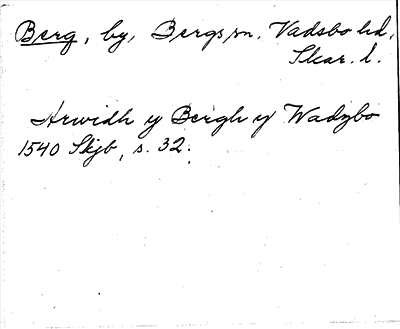 Berg, by, Bergs sn. Vadsbo hd,
Skar. l.
Arwidh y Bergh y Wadzbo
1540 Skjb, s. 32.